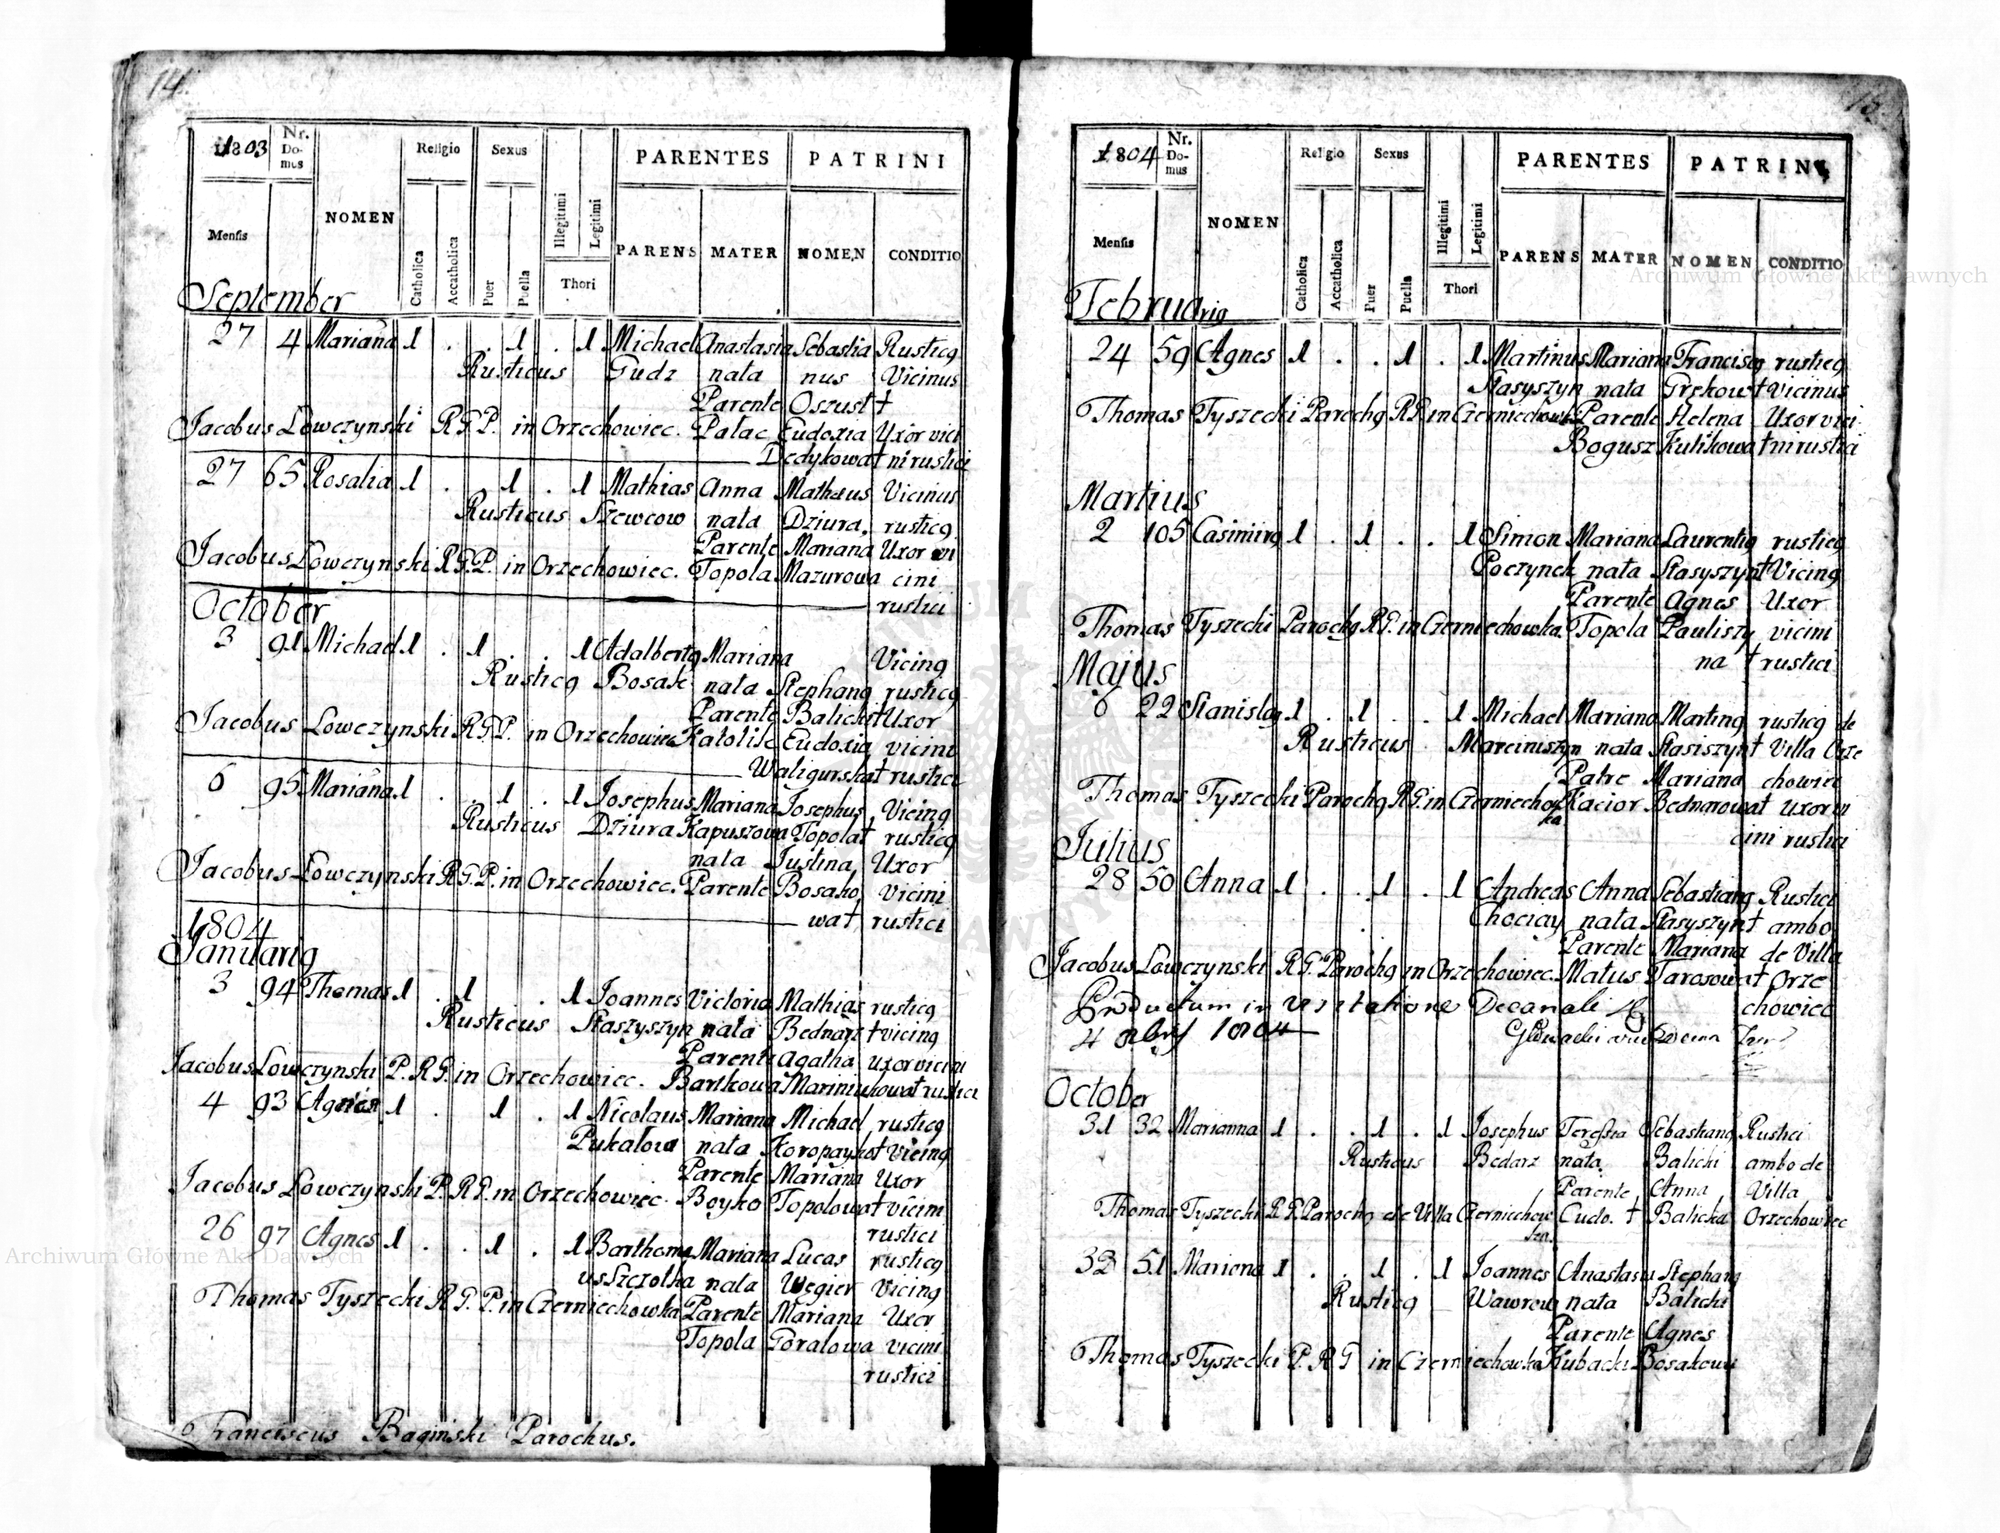 14.
1803 Nr. Domus NOMEN Religio Sexus Illegitimi Legitimi PARENTES PATRINI
Mensis Catholica Accatholica Puer Puella Thori PARENS MATER NOMEN CONDITIO
September
27 4 Marianna 1 . . 1 . 1 Michael Anastasia Sebastia Rusticq
Rusticus Gudz nata nus Vicinus
Parente Oszust †
Jacobus Łowczynski R.G.P. in Orzechowiec. Pałac Eudoxia Uxor vici
Dedykowa † ni rustici
27 65 Rosalia 1 . . 1 . 1 Mathias Anna Matheus Vicinus
Rusticus Szewcow nata Dziura, rusticq
Parente Mariana Uxor vi
Jacobus Łowczynski R.G.P. in Orzechowiec. Topola Mazurowa cini
rustici
October
3 91 Michael 1 . 1 . . 1 Adalbertq Mariana Vicinq
Rusticq Bosak nata Stephanq rusticq
Parente Balicki † Uxor
Jacobus Lowczynski R.G.P. in Orzechowiec Katolik Eudoxia vicini
Waligurska † rustici
6 95 Mariana 1 . . 1 . 1 Josephus Mariana Josephus Vicinq
Rusticus Dziura Kapuszowa Topola † rusticq
nata Justina Uxor
Jacobus Łowczynski R.G.P. in Orzechowiec. Parente Bosako, Vicini
wa † rustici
1804
Januariq
3 94 Thomas 1 . 1 . 1 Joannes Victoria Mathias rusticq
Rusticus Staszyszyn nata Bednarz † vicinq
Parente Agatha uxor vicini
Jacobus Lowczynski P. R.G. in Orzechowiec. Bartkowa rustici
4 93 Agnes 1 . 1 . 1 Nicolaus Mariana Michael rusticq
Pukalow nata Vicinq
Parente Mariana Uxor
Jacobus Lowczynski P. R.G. in Orzechowiec. Boyko Topolowa † vicini
rustici
26 97 Agnes 1 . . 1 . 1 Barthome Mariana Lucas rusticq
us Szczotka nata Węgier Vicinq
Thomas Tyszecki R.G.P. in Czerniechowka Parente Mariana Uxor
Topola Goralowa vicini
rustici
Franciscus Baginski Parochus.
15
1804 Nr. Domus NOMEN Religio Sexus Illegitimi Legitimi PARENTES PATRINI
Mensis Catholica Accatholica Puer Puella Thori PARENS MATER NOMEN CONDITIO
Februariq
24 59 Agnes 1 . . 1 . 1 Martinus Mariana Franciscq rusticq
Stasyszyn nata Vicinus
Thomas Tyszecki Parochq R.G. in Czerniechowka Parente Helena Uxor vici
Bogusz Kulikowa † ni rustici
Martius
2 105 Casimirq 1 . 1 . . 1 Simon Mariana Laurentiq rusticq
Poczynek nata Stasyszyn † Vicinq
Parente Agnes Uxor
Thomas Tyszecki Parochq R.G. in Czerniechowka. Topola Pauliszy vicini
na † rustici
Majus
6 22 Stanislaq 1 . 1 . . 1 Michael Mariana Martinq rusticq de
Rusticus Marciniszyn nata Stasiszyn † Villa Orze
Patre Mariana chowiec
Thomas Tyszecki Parochq R.G. in Czerniechow Kacior Bednarowa † uxor vi
ka. cini rustici
Julius
28 50 Anna 1 . . 1 . 1 Andreas Anna Sebastianq Rustici
Chociay nata Stasyszyn † ambo
Parente Mariana de Villa
Jacobus Lowczynski R.G. Parochq in Orzechowiec. Matus Tarasowa † Orze
Productum in visitatione Decanali chowiec
4 1804
October
31 32 Marianna 1 . . 1 . 1 Josephus Teressia Sebastianq Rustici
Rusticus Bedarz nata Balicki ambo de
Parente Anna Villa
Thomas Tyszecki R.G. Parochq de Villa Czerniechow Cudo. † Balicka Orzechowiec
ka.
32 51 Mariena 1 . . 1 . 1 Joannes Anastasia Stephanq
Rusticq Wawrow nata Balicki
Parente Agnes
Thomas Tyszecki P. R.G in Czerniechowka Kubacki Bosakowa
Archiwum Główne Akt Dawnych
Archiwum Główne Akt Dawnych